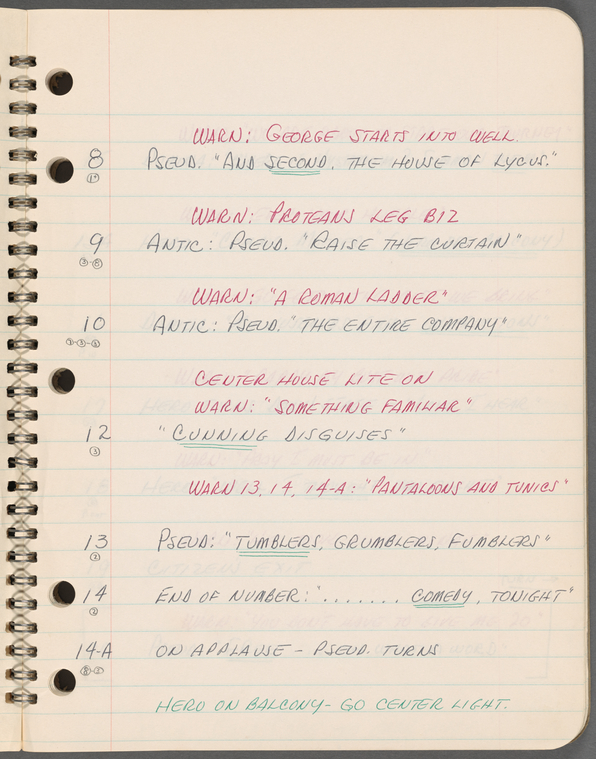 WARN: GEORGE STARTS INTO WELL.
8 PSEUD. "AND SECOND, THE HOUSE OF LYCUS."
WARN: PROTEANS LEG B12
9 ANTIC: PSEUD. "RAISE THE CURTAIN"
WARN: "A ROMAN LADDER"
10 ANTIC: PSEUD. "THE ENTIRE COMPANY"
CENTER HOUSE LITE ON
WARN: "SOMETHING FAMILIAR"
12 "CUNNING DISGUISES"
3
WARN 13, 14, 14-A: "PANTALOONS AND TUNICS"
13 PSEUD: "TUMBLERS, GRUMBLERS, FUMBLERS"
2
14 END OF NUMBER: "....... COMEDY, TONIGHT"
2
14-A ON APPLAUSE - PSEUD. TURNS
HERO ON BALCONY - GO CENTER LIGHT.